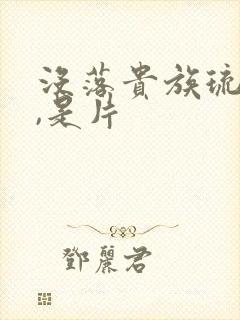 没落貴族琉
,是片
鄧麗君